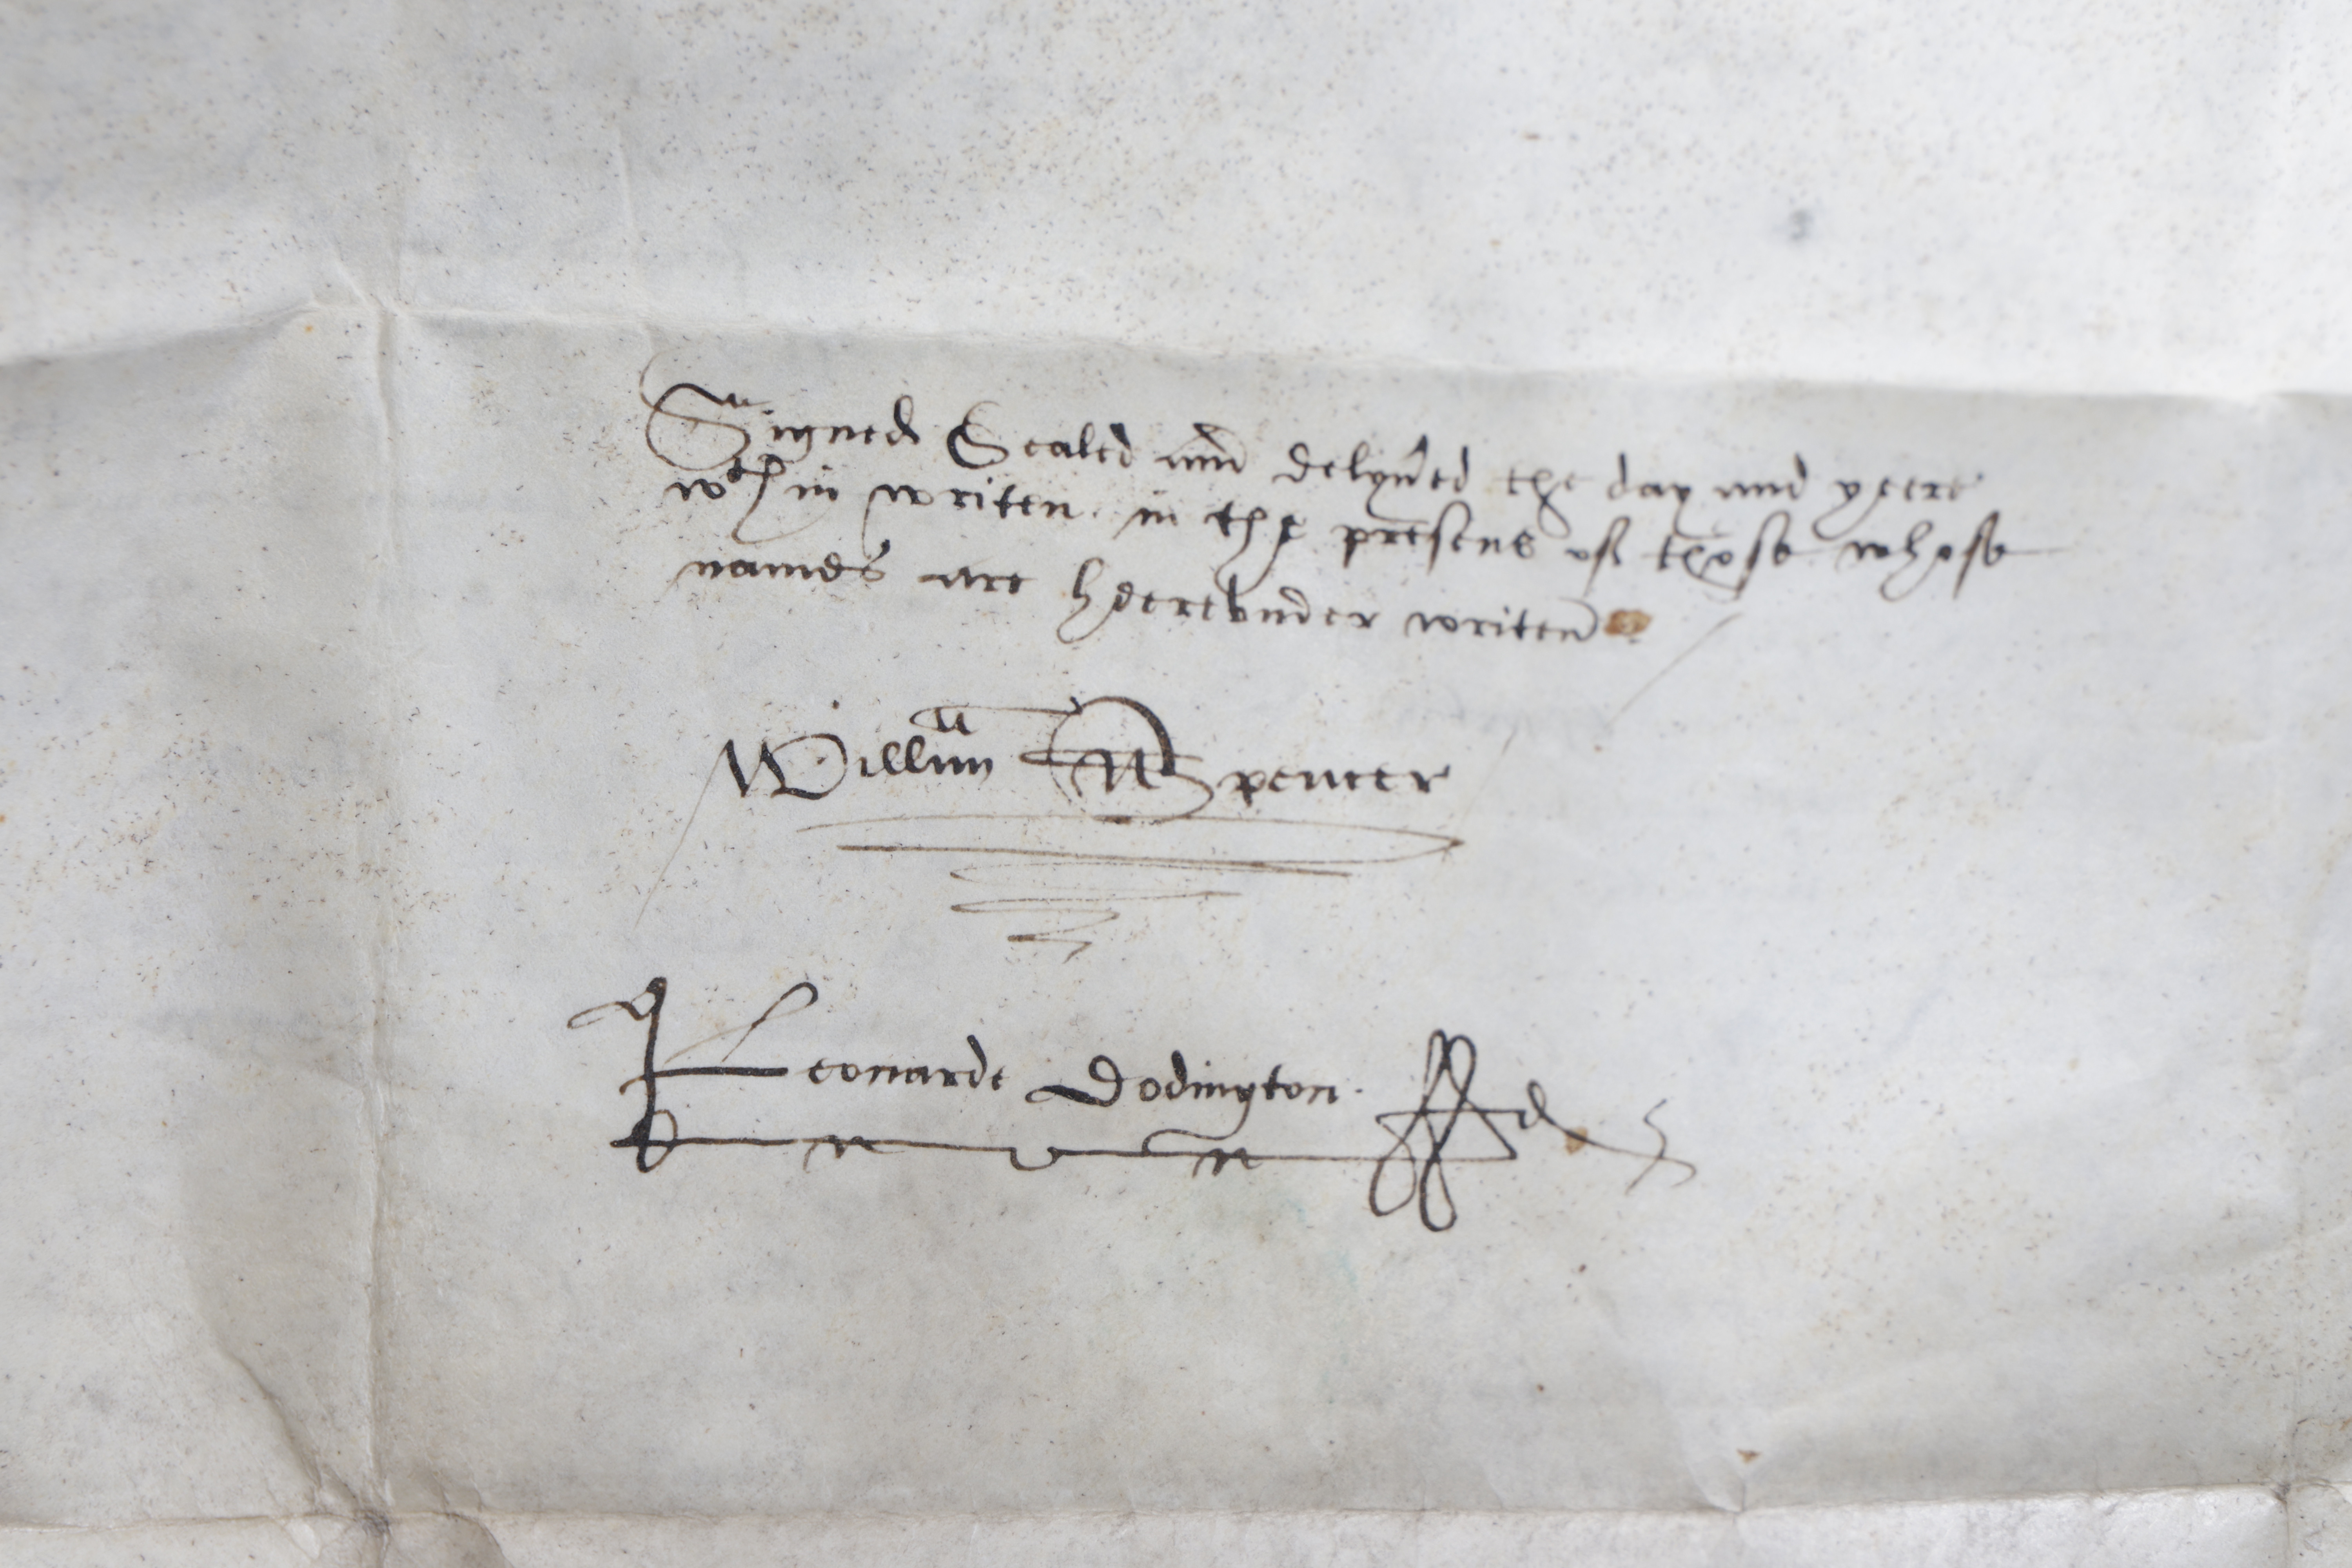 Signed Sealed and delyu'ed the day and yeere
wthin writen in the presens of those whose
names are heerevnder writen
Willm Spencer
Leonarde Dodington